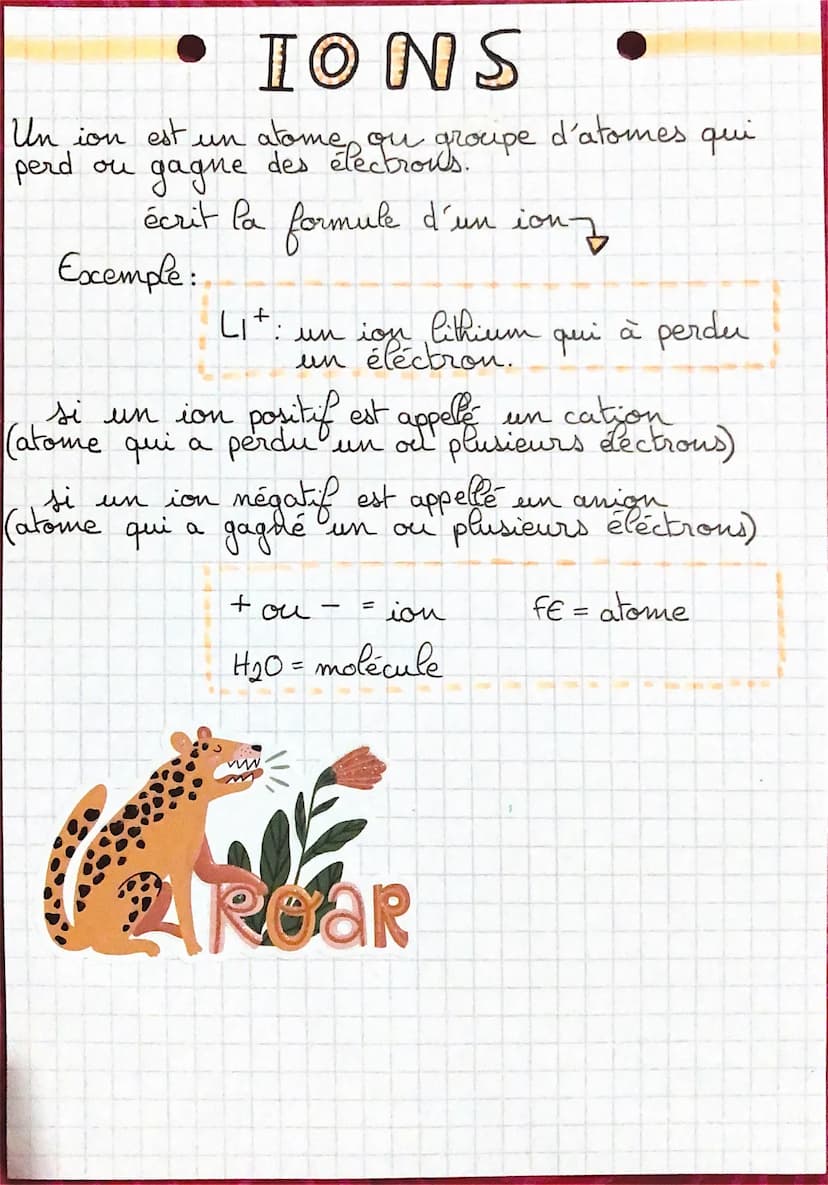 IONS
Un ion est un atome ou groupe d'atomes qui
perd ou gagne des électrons.
écrit la formule d'un ion
Exemple:
LI⁺: un ion lithium qui à perdu
un éléctron.
si un ion positif est appellé un cation
(atome qui a perdu un ou plusieurs électrons)
si un ion négatif est appellé un anion
(atome qui a gagné un ou plusieurs éléctrons)
+ ou - = ion FE = atome
H2O = molécule
ROAR